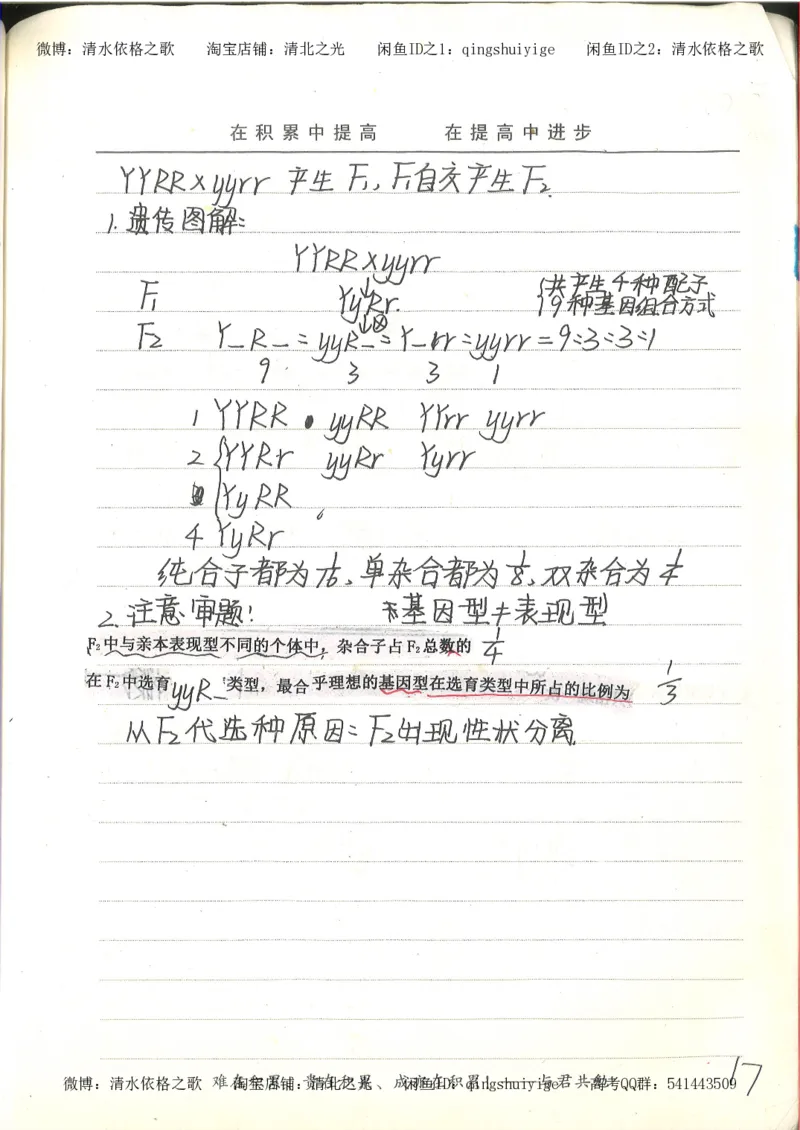 微博：清水依格之歌 淘宝店铺：清北之光 闲鱼ID之1：qingshuiyige 闲鱼ID之2：清水依格之歌
在积累中提高 在提高中进步
YYRR×yyrr 产生F₁，F₁自交产生F₂.
1.遗传图解：
YYRR×yyrr
↓
F₁ YyRr. {共产生4种配子
9种基因组合方式
↓⊗
F₂ Y_R_：yyR_：Y_rr：yyrr=9：3：3：1
9 3 3 1
1 YYRR yyRR YYrr yyrr
2 {YYRr yyRr Yyrr
YyRR
4 YyRr
纯合子都为1/16，单杂合都为1/8，双杂合为1/4
2.注意审题！ 基因型≠表现型
F₂中与亲本表现型不同的个体中，杂合子占F₂总数的 1/4
在F₂中选育yyR_类型，最合乎理想的基因型在选育类型中所占的比例为 1/3
从F₂代选种原因：F₂出现性状分离
微博：清水依格之歌 淘宝店铺：清北之光 闲鱼ID：qingshuiyige 高考QQ群：541443509
17